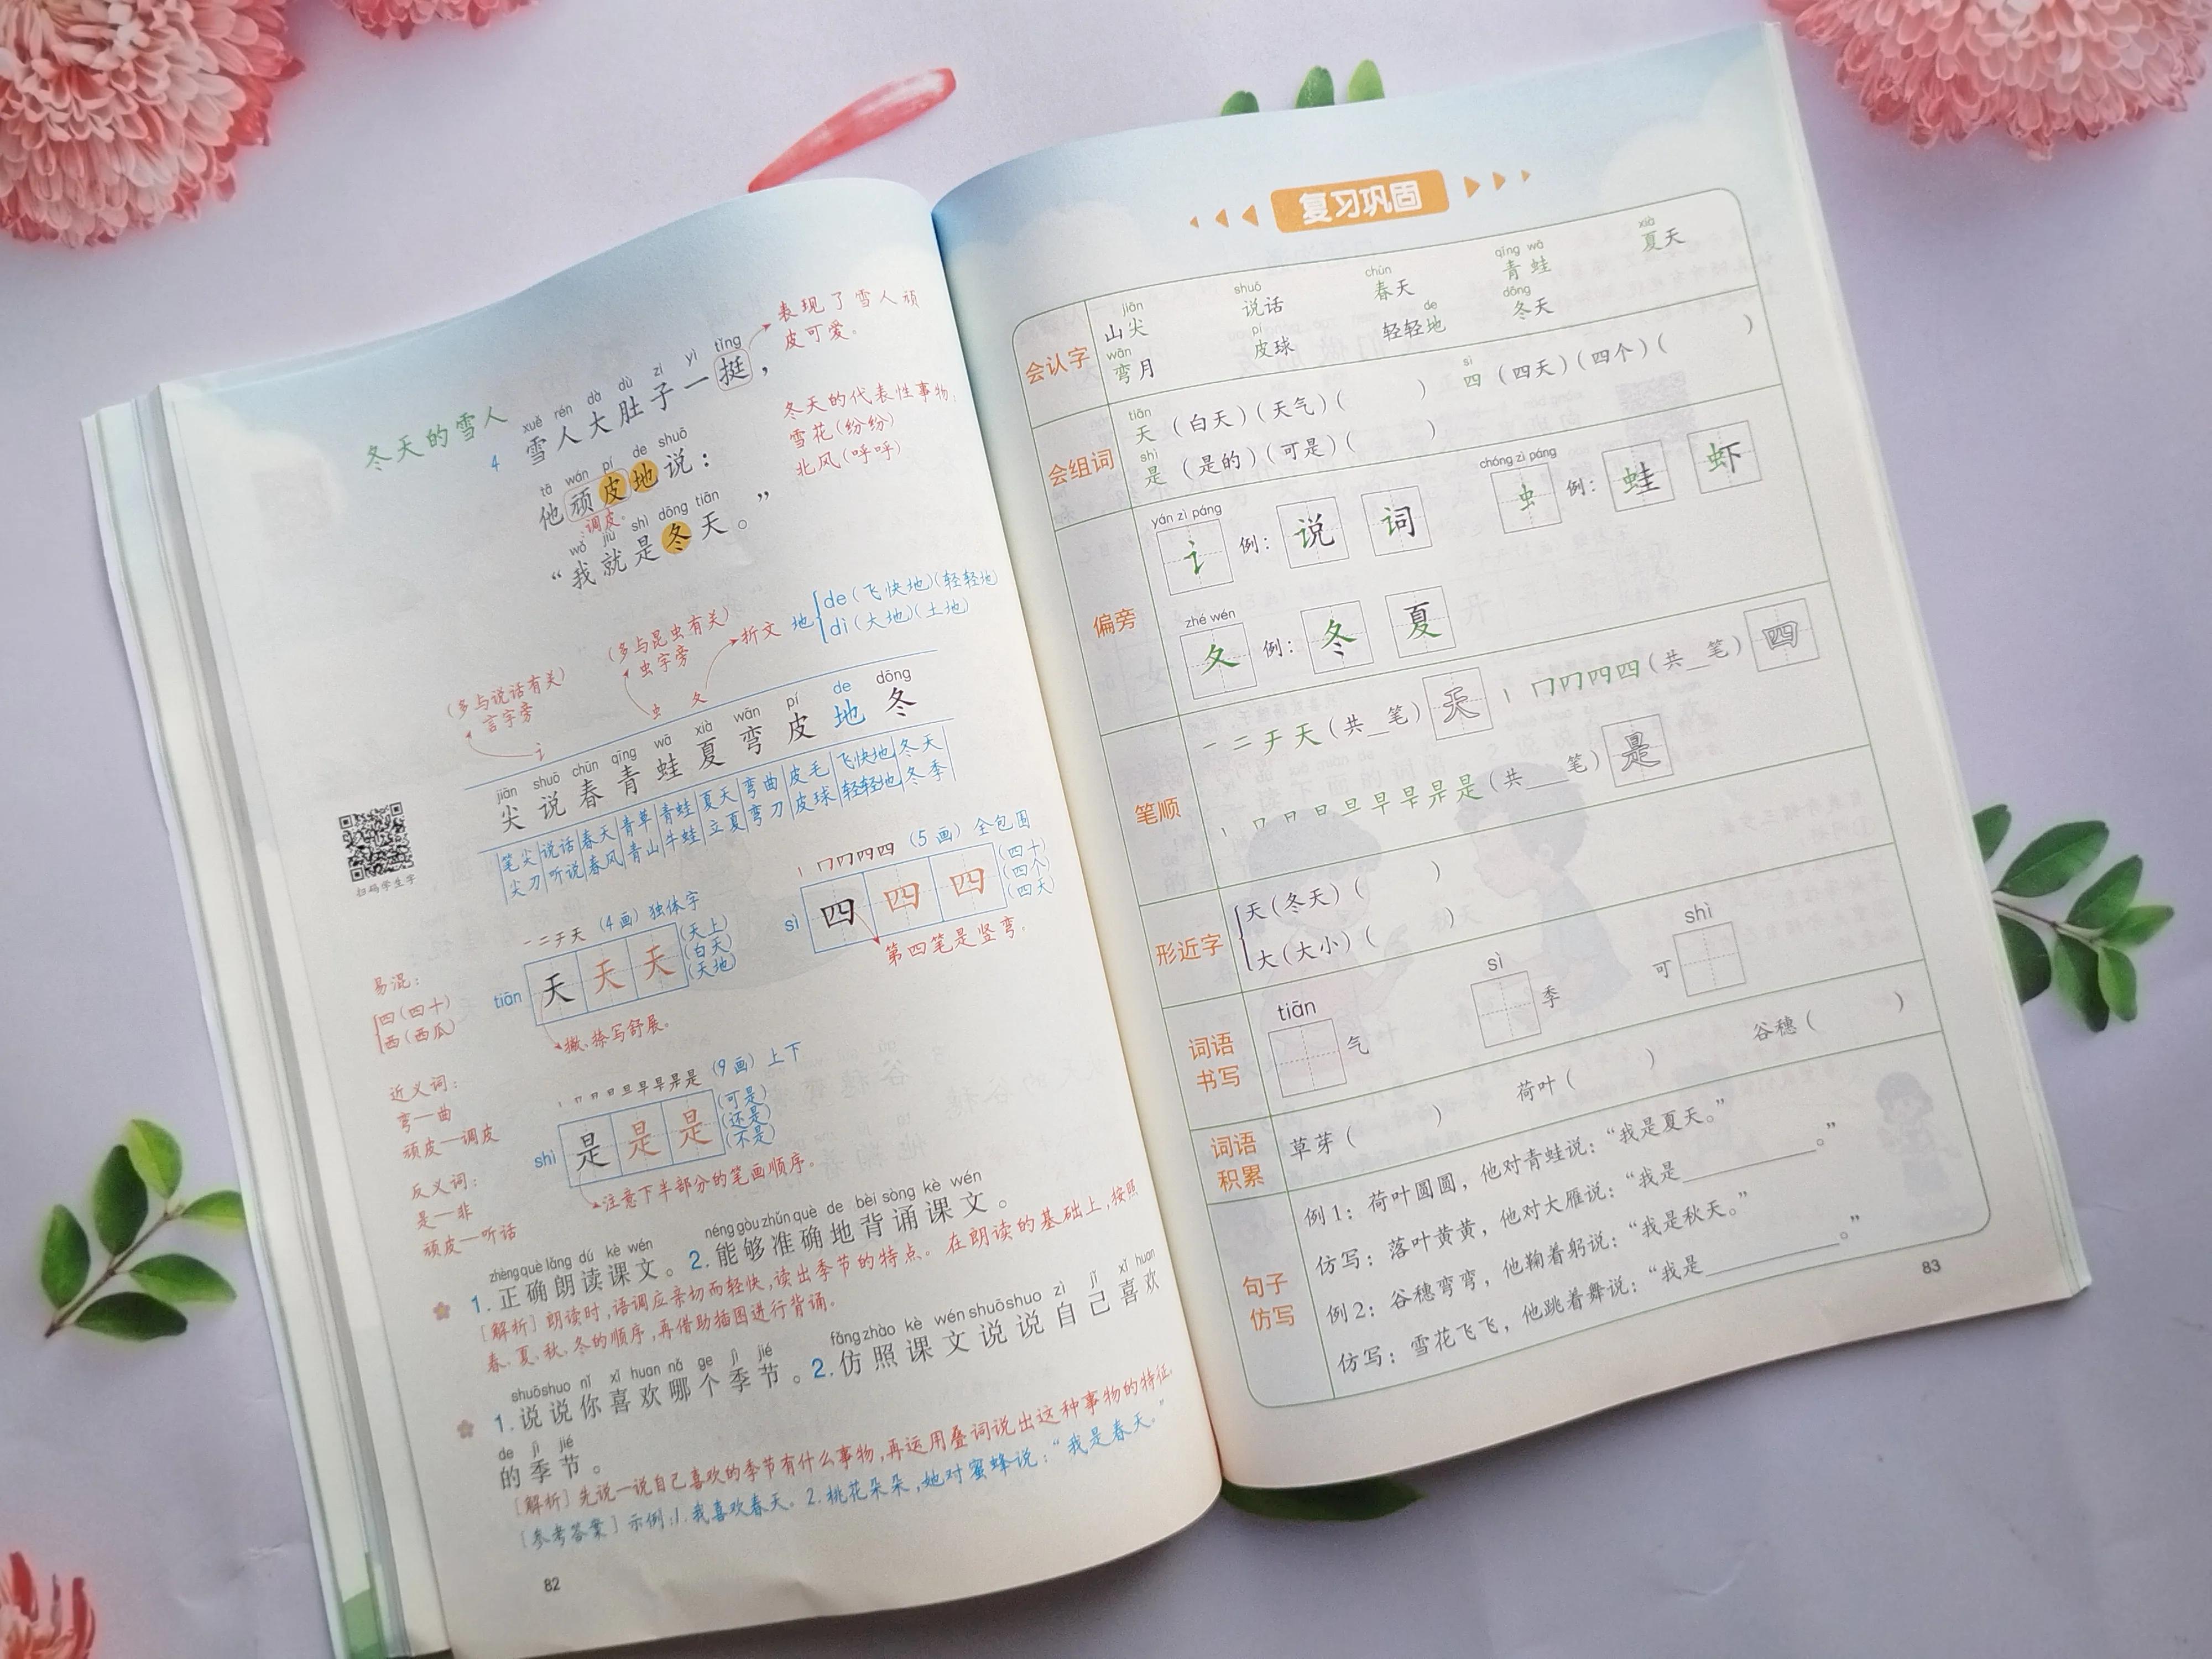 冬天的雪人
表现了雪人顽
皮可爱。
xuě rén dà dù zi yì tǐng
4 雪人大肚子一挺，
冬天的代表性事物：
雪花(纷纷)
北风(呼呼)
tā wán pí de shuō
他顽皮地说：
调皮。
wǒ jiù shì dōng tiān
“我就是冬天。”
地 de (飞快地)(轻轻地)
dì (大地)(土地)
(多与说话有关)
言字旁
讠
(多与昆虫有关)
虫字旁
虫
折文
夂
jiān shuō chūn qīng wā xià wān pí de dōng
尖 说 春 青 蛙 夏 弯 皮 地 冬
笔尖 说话 春天 青草 青蛙 夏天 弯曲 皮毛 飞快地 冬天
尖刀 听说 春风 青山 牛蛙 立夏 弯刀 皮球 轻轻地 冬季
扫码学生字
一 二 于 天 (4画) 独体字
tiān 天 天 天
(天上)
(白天)
(天地)
撇、捺写舒展。
丨 冂 冂 四 四 (5画) 全包围
sì 四 四 四
(四十)
(四个)
(四天)
第四笔是竖弯。
易混：
四(四十)
西(西瓜)
(9画) 上下
shì 是 是 是
(可是)
(还是)
(不是)
注意下半部分的笔画顺序。
近义词：
弯—曲
顽皮—调皮
反义词：
是—非
顽皮—听话
zhèng què lǎng dú kè wén néng gòu zhǔn què de bèi sòng kè wén
1.正确朗读课文。2.能够准确地背诵课文。
[解析]朗读时,语调应亲切而轻快,读出季节的特点。在朗读的基础上,按照
春、夏、秋、冬的顺序,再借助插图进行背诵。
shuō shuo nǐ xǐ huan nǎ ge jì jié fǎng zhào kè wén shuō shuo zì jǐ xǐ huan
1.说说你喜欢哪个季节。2.仿照课文说说自己喜欢
de jì jié
的季节。
[解析]先说一说自己喜欢的季节有什么事物,再运用叠词说出这种事物的特征。
[参考答案]示例:1.我喜欢春天。2.桃花朵朵,她对蜜蜂说：“我是春天。”
82
复习巩固
会认字
jiān shuō chūn qīng wā xià
山尖 说话 春天 青蛙 夏天
wān pí de dōng
弯月 皮球 轻轻地 冬天
会组词
tiān sì
天 (白天)(天气)( ) 四 (四天)(四个)( )
shì
是 (是的)(可是)( )
偏旁
yán zì páng chóng zì páng
讠 例：说 词 虫 例：蛙 虾
zhé wén
夂 例：冬 夏
笔顺
一 二 于 天 (共_笔) 天 丨 冂 冂 四 四 (共_笔) 四
(共__笔) 是
形近字
天(冬天)( )
大(大小)( )
词语
书写
tiān sì shì
气 季 可
词语
积累
草芽( ) 荷叶( ) 谷穗( )
句子
仿写
例1：荷叶圆圆，他对青蛙说：“我是夏天。”
仿写：落叶黄黄，他对大雁说：“我是__________。”
例2：谷穗弯弯，他鞠着躬说：“我是秋天。”
仿写：雪花飞飞，他跳着舞说：“我是__________。”
83